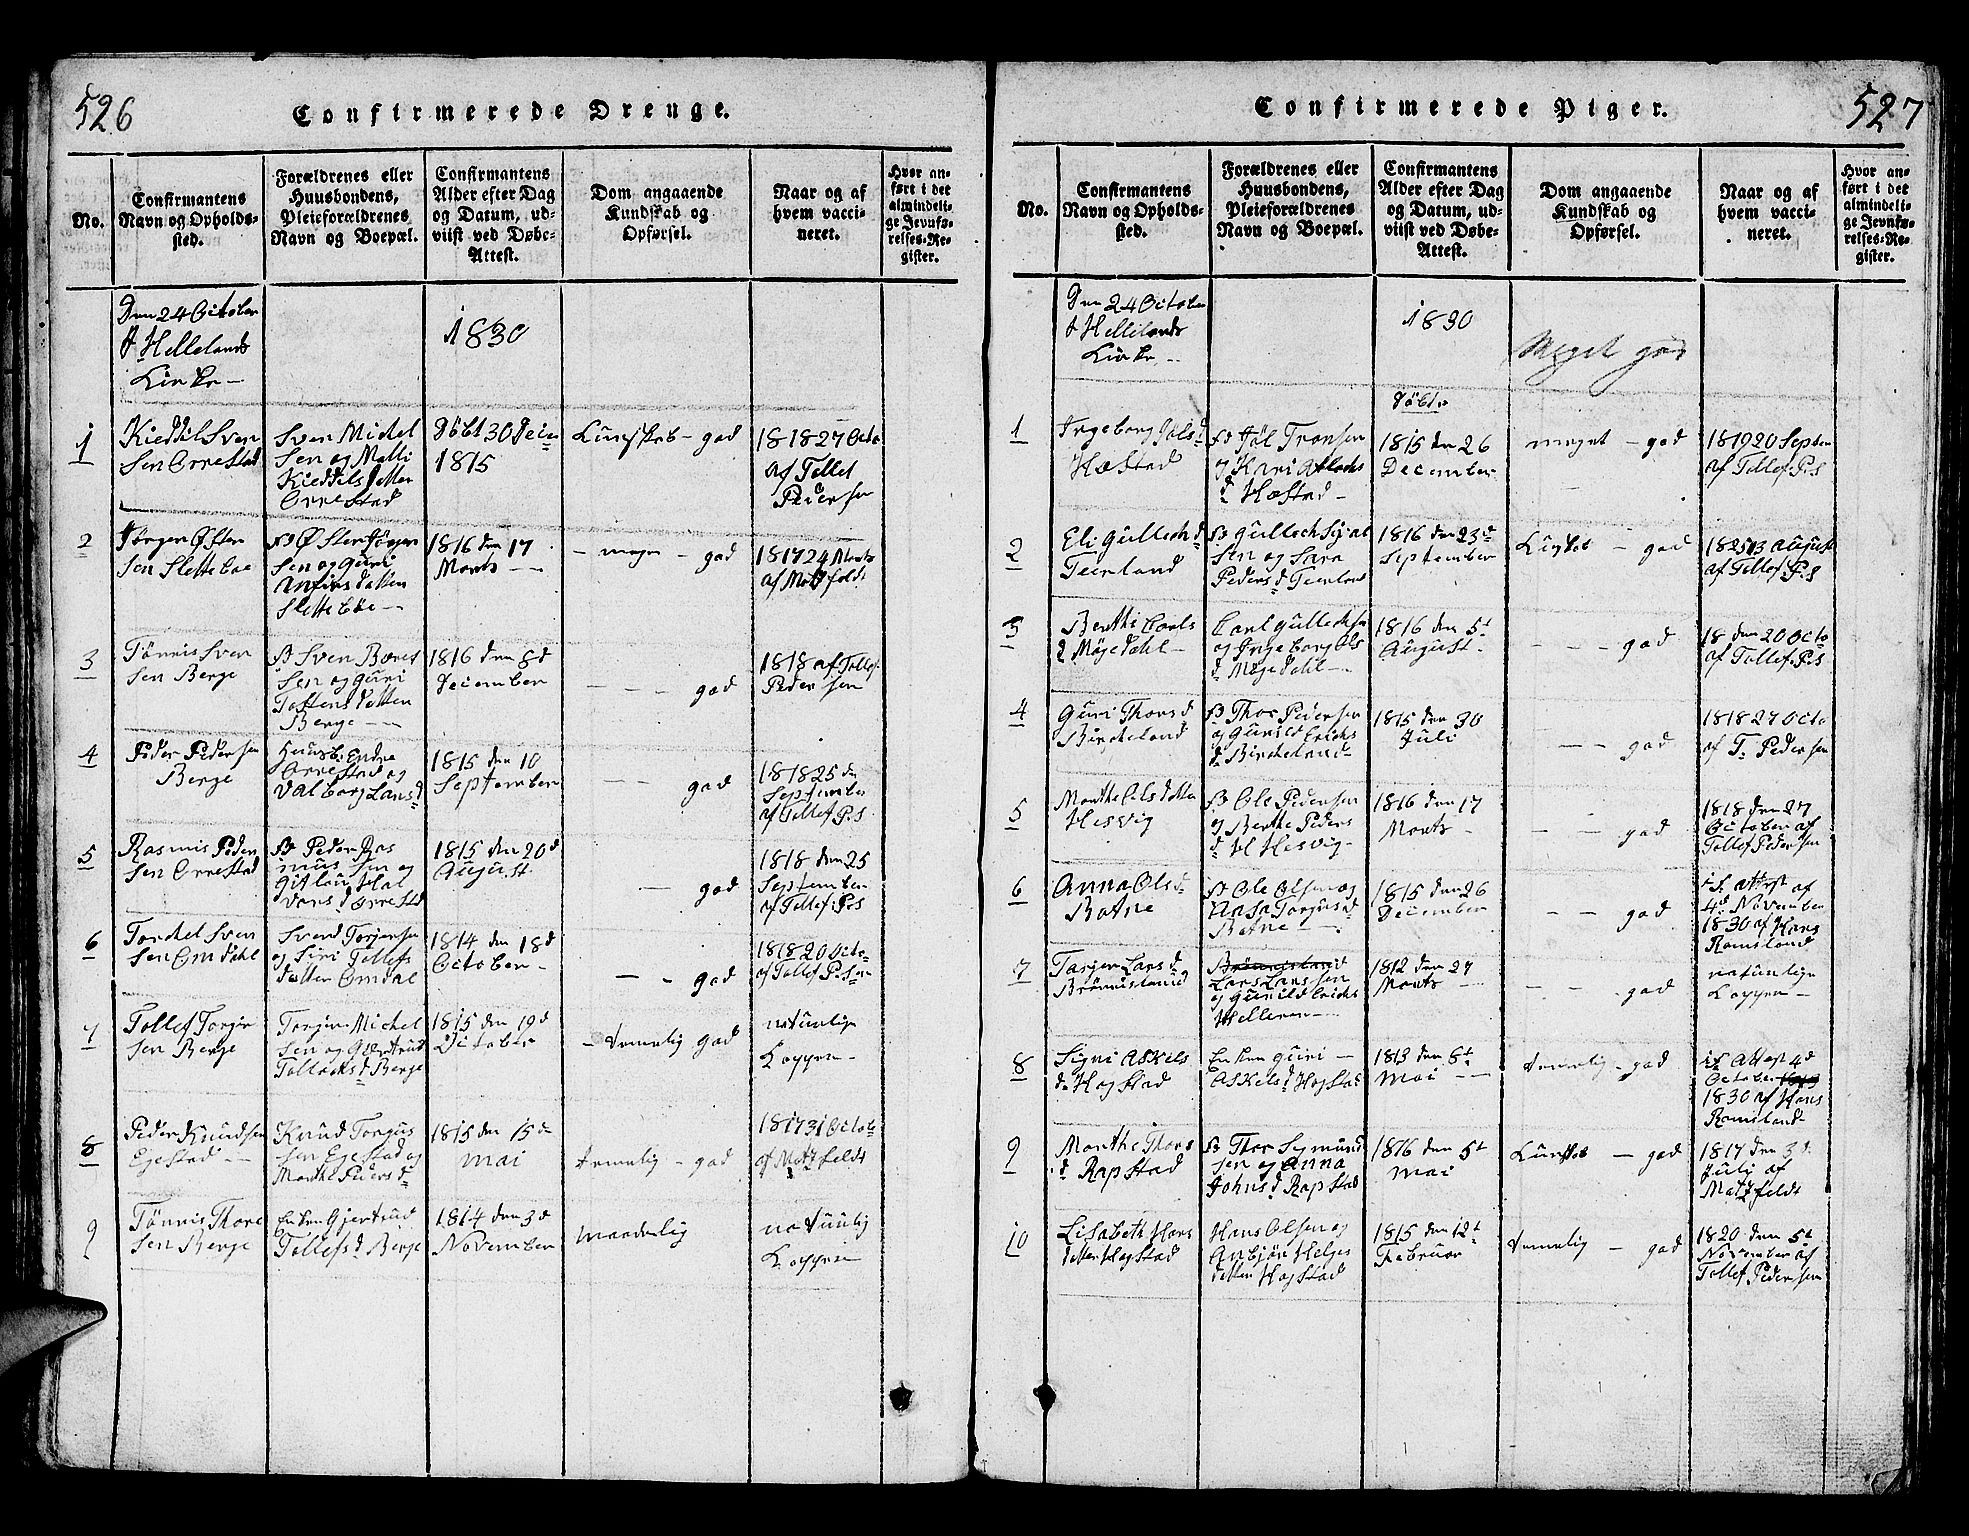 526
Confirmerede Drenge.
No.
Confirmantens
Navn og Opholds-
sted.
Forældrenes eller
Huusbondens,
Pleieforældrenes
Navn og Boepæl.
Confirmantens
Alder efter Dag
og Datum, ud-
viist ved Døbe-
Attest.
Dom angaaende
Kundskab og
Opførsel.
Naar og af
hvem vacci-
neret.
Hvor an-
ført i det
almindeli-
ge Jevnfø-
relses-Re-
gister.
Den 24 October
Hellelands
Kirke
1830
1
Kieddil Sven
sen Orrestad
Sven Michel
sen og Malli
Kieddels dotter
Orrestad
Døbt 30 Dece
1815
Kundskab - god
1818 27 Octo
af Tollef
Pedersen
2
Jørgen Østen
sen Slettebøe
Østen Jørgen
sen og Guri
dotter
Slettebøe
1816 den 17
Marts
- god
1817 24
af Motzfeldt
3
Tønnis Sven
sen Berge
Sven
sen og Guri
dotter
Berge
1816 den 8d
December
- - - god
1818 af Tollef
Pedersen
4
Peder Pedersen
Berge
Huusb. Endre
Orrestad og
Valborg Larsd
1815 den 10
September
- - god
1818 25 de
September
af Tollef P.s
5
Rasmus Peder
sen Orrestad
Peder Ras
mus sen og
Hal
vors d Orrestd
1815 den 20d
August
- god
1818 den 25
September
af Tollef P.s
6
Torckel Sven
sen Omdahl
Svend Torjersen
og Siri Tollefs
datter Omdal
1814 den 18d
October
- - god
1818 20 Octo
af Tollef P.sen
7
Tollef Torger
sen Berge
Torger Michel
sen og Giertrud
Tollacks d Berge
1815 den 19d
October
- temelig god
naturlige
Kopper
8
Peder Knudsen
Egestad
Knud Torgus
sen Egestad og
Marthe Peders d
1815 den 15 de
Mai
temelig - god
1817 31 Octob
af Motzfeldt
9
Tønnis Thore
sen Berge
Enken Gjertrud
Tollefs d Berge
1814 den 3d
November
maadelig
naturlig
Kopper
527
Confirmerede Piger.
No.
Confirmantens
Navn og Opholds-
sted.
Forældrenes eller
Huusbondens,
Pleieforældrenes
Navn og Boepæl.
Confirmantens
Alder efter Dag
og Datum, ud-
viist ved Døbe-
Attest.
Dom angaaende
Kundskab og
Opførsel.
Naar og af
hvem vacci-
neret.
Hvor an-
ført i det
almindeli-
ge Jevnfø-
relses-Re-
gister.
Den 24 October
Hellelands
Kirke
1830
Meget god
Døbte
1
Ingeborg Jøls d
Hæstad
Jøl Tronsen
og Kari Aslachs
d Hæstad
1815 den 26
December
meget - god
1819 20 Septem
af Tollef P.s
2
Eli Gullech d
Teenland
Gullech Sival
sen og Sara
Peders d Teenland
1816 den 23d
September
- god
1825 13 August
af Tollef P.s
3
Berthe Carls
d Møgedahl
Carl Gullechsen
og Ingeborg Ols
d Møgedahl
1816 den 5t
August
- - - god
18 den 20 Octo
af Tollef P.s
4
Guri Thors d
Birckeland
Thor Pedersen
og Gunild Erichs
d Birckeland
1815 den 30
Juli
- - god
1818 27 Octo
af T. Pedersen
5
Marthe Ols dotter
Hesvig
Ole Pedersen
og Berthe Peders
d Hesvig
1816 den 17
Marts
- - god
1818 den 27
October af
Tollef Pedersen
6
Anna Ols d
Botne
Ole Olsen og
Torgus d
Botne
1815 den 26
December
- - god
attest af
4d November
1830 af Hans
Ramsland
7
Torger Lars d
Brønnisland
Brønnisland
Lars Larssen
og Gunild Erichs
Helleren
1812 den 27
Marts
- - god
naturlige
Kopper
8
Signi Askels
d Hogstad
Enken Guri
Askels d Hogstad
1813 den 6t
Mai
temelig - god
Attest 4d
October
1830 af Hans
Ramsland
9
Marthe Thors
d Rapstad
Thor Sigmund
sen og Anna
Johns d Rapstad
1816 den 5t
Mai
- god
1817 den 3d
Juli af
Motzfeldt
10
Lisabeth Hans
datter Hogstad
Hans Olsen og
Anbjør Helges
datter Hogstad
1815 den 12t
Februar
temelig - god
1820 den 5t
November af
Tollef Pedersen